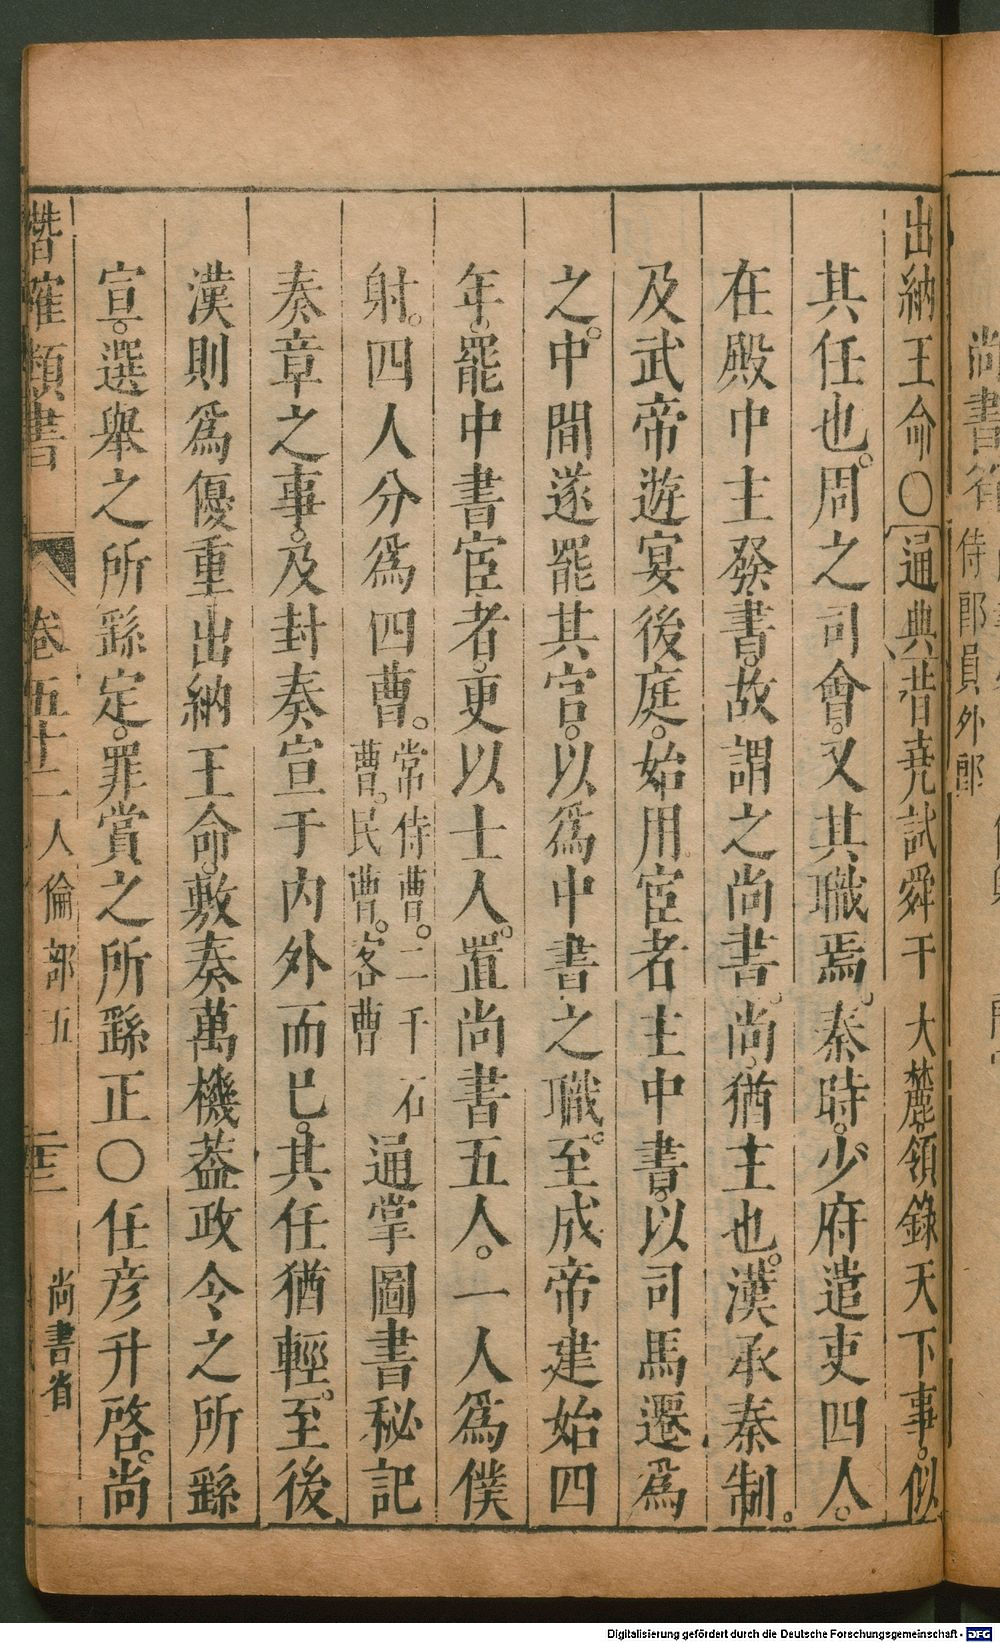 尚書省侍郎員外郎
出納王命○通典昔堯試舜于大麓領錄天下事。似
其任也。周之司會。又其職焉。秦時。少府遣吏四人。
在殿中主發書。故謂之尚書。尚。猶主也。漢承秦制。
及武帝遊宴後庭。始用宦者主中書。以司馬遷為
之。中間遂罷其官。以為中書之職。至成帝建始四
年。罷中書宦者。更以士人。置尚書五人。一人為僕
射。四人分為四曹。常侍曹。二千石曹。民曹。客曹通掌圖書秘記
奏章之事。及封奏宣于內外而已。其任猶輕。至後
漢則為優重出納王命。敷奏萬機葢政令之所繇
宣。選舉之所繇定。罪賞之所繇正○任彥升啓。尚
潛確類書 卷五十一人倫部五 二十三 尚書省
Digitalisierung gefördert durch die Deutsche Forschungsgemeinschaft - DFG